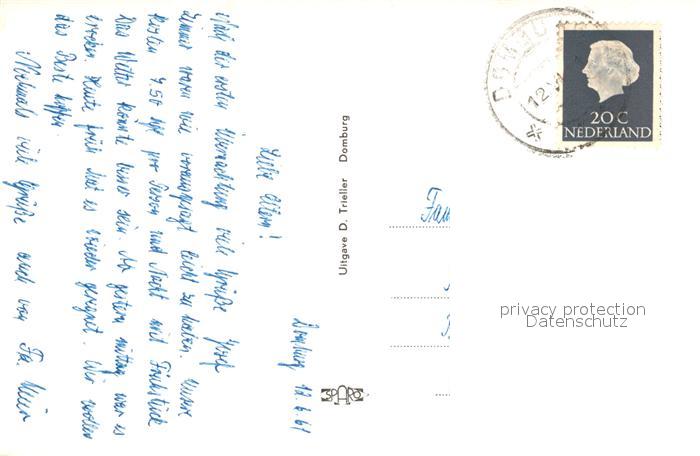 Domburg 12.6.61
Liebe Eltern!
Nach der ersten Übernachtung viele Grüße Josef
Zimmer waren wie vorausgesagt leicht zu haben. Unser
kosten 7.50 hfl pro Person und Nacht mit Frühstück
Das Wetter könnte besser sein. Ab gestern mittag war es
trocken. Heute früh hat es wieder geregnet. Wir wollen
das Beste hoffen.
Nochmals viele Grüße auch von Fa.
Uitgave D. Trieller Domburg
SPARO
DOMBURG
12 VI
20 C
NEDERLAND
Fam
privacy protection
Datenschutz